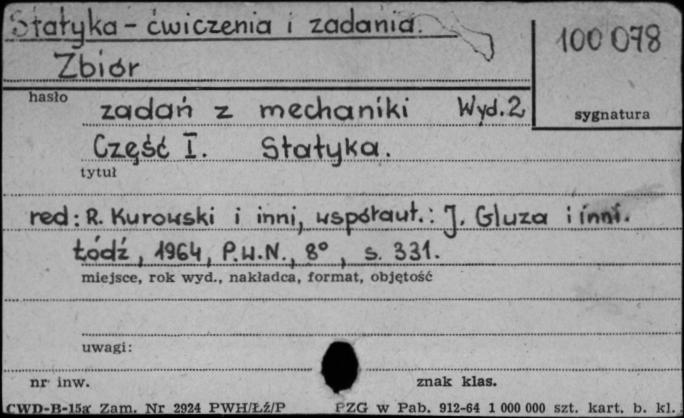 Statyka - ćwiczenia i zadania.
100 078
Zbiór
hasło
zadań z mechaniki Wyd. 2
sygnatura
Część I. Statyka.
tytuł
red: R. Kurowski i inni, współaut.: J. Gluza i inni.
Łódź, 1964, P.W.N., 8°, s. 331.
miejsce, rok wyd., nakładca, format, objętość
uwagi:
nr inw. znak klas.
CWD-B-15a Zam. Nr 2924 PWH/Łź/P PZG w Pab. 912-64 1 000 000 szt. kart. b. kl.